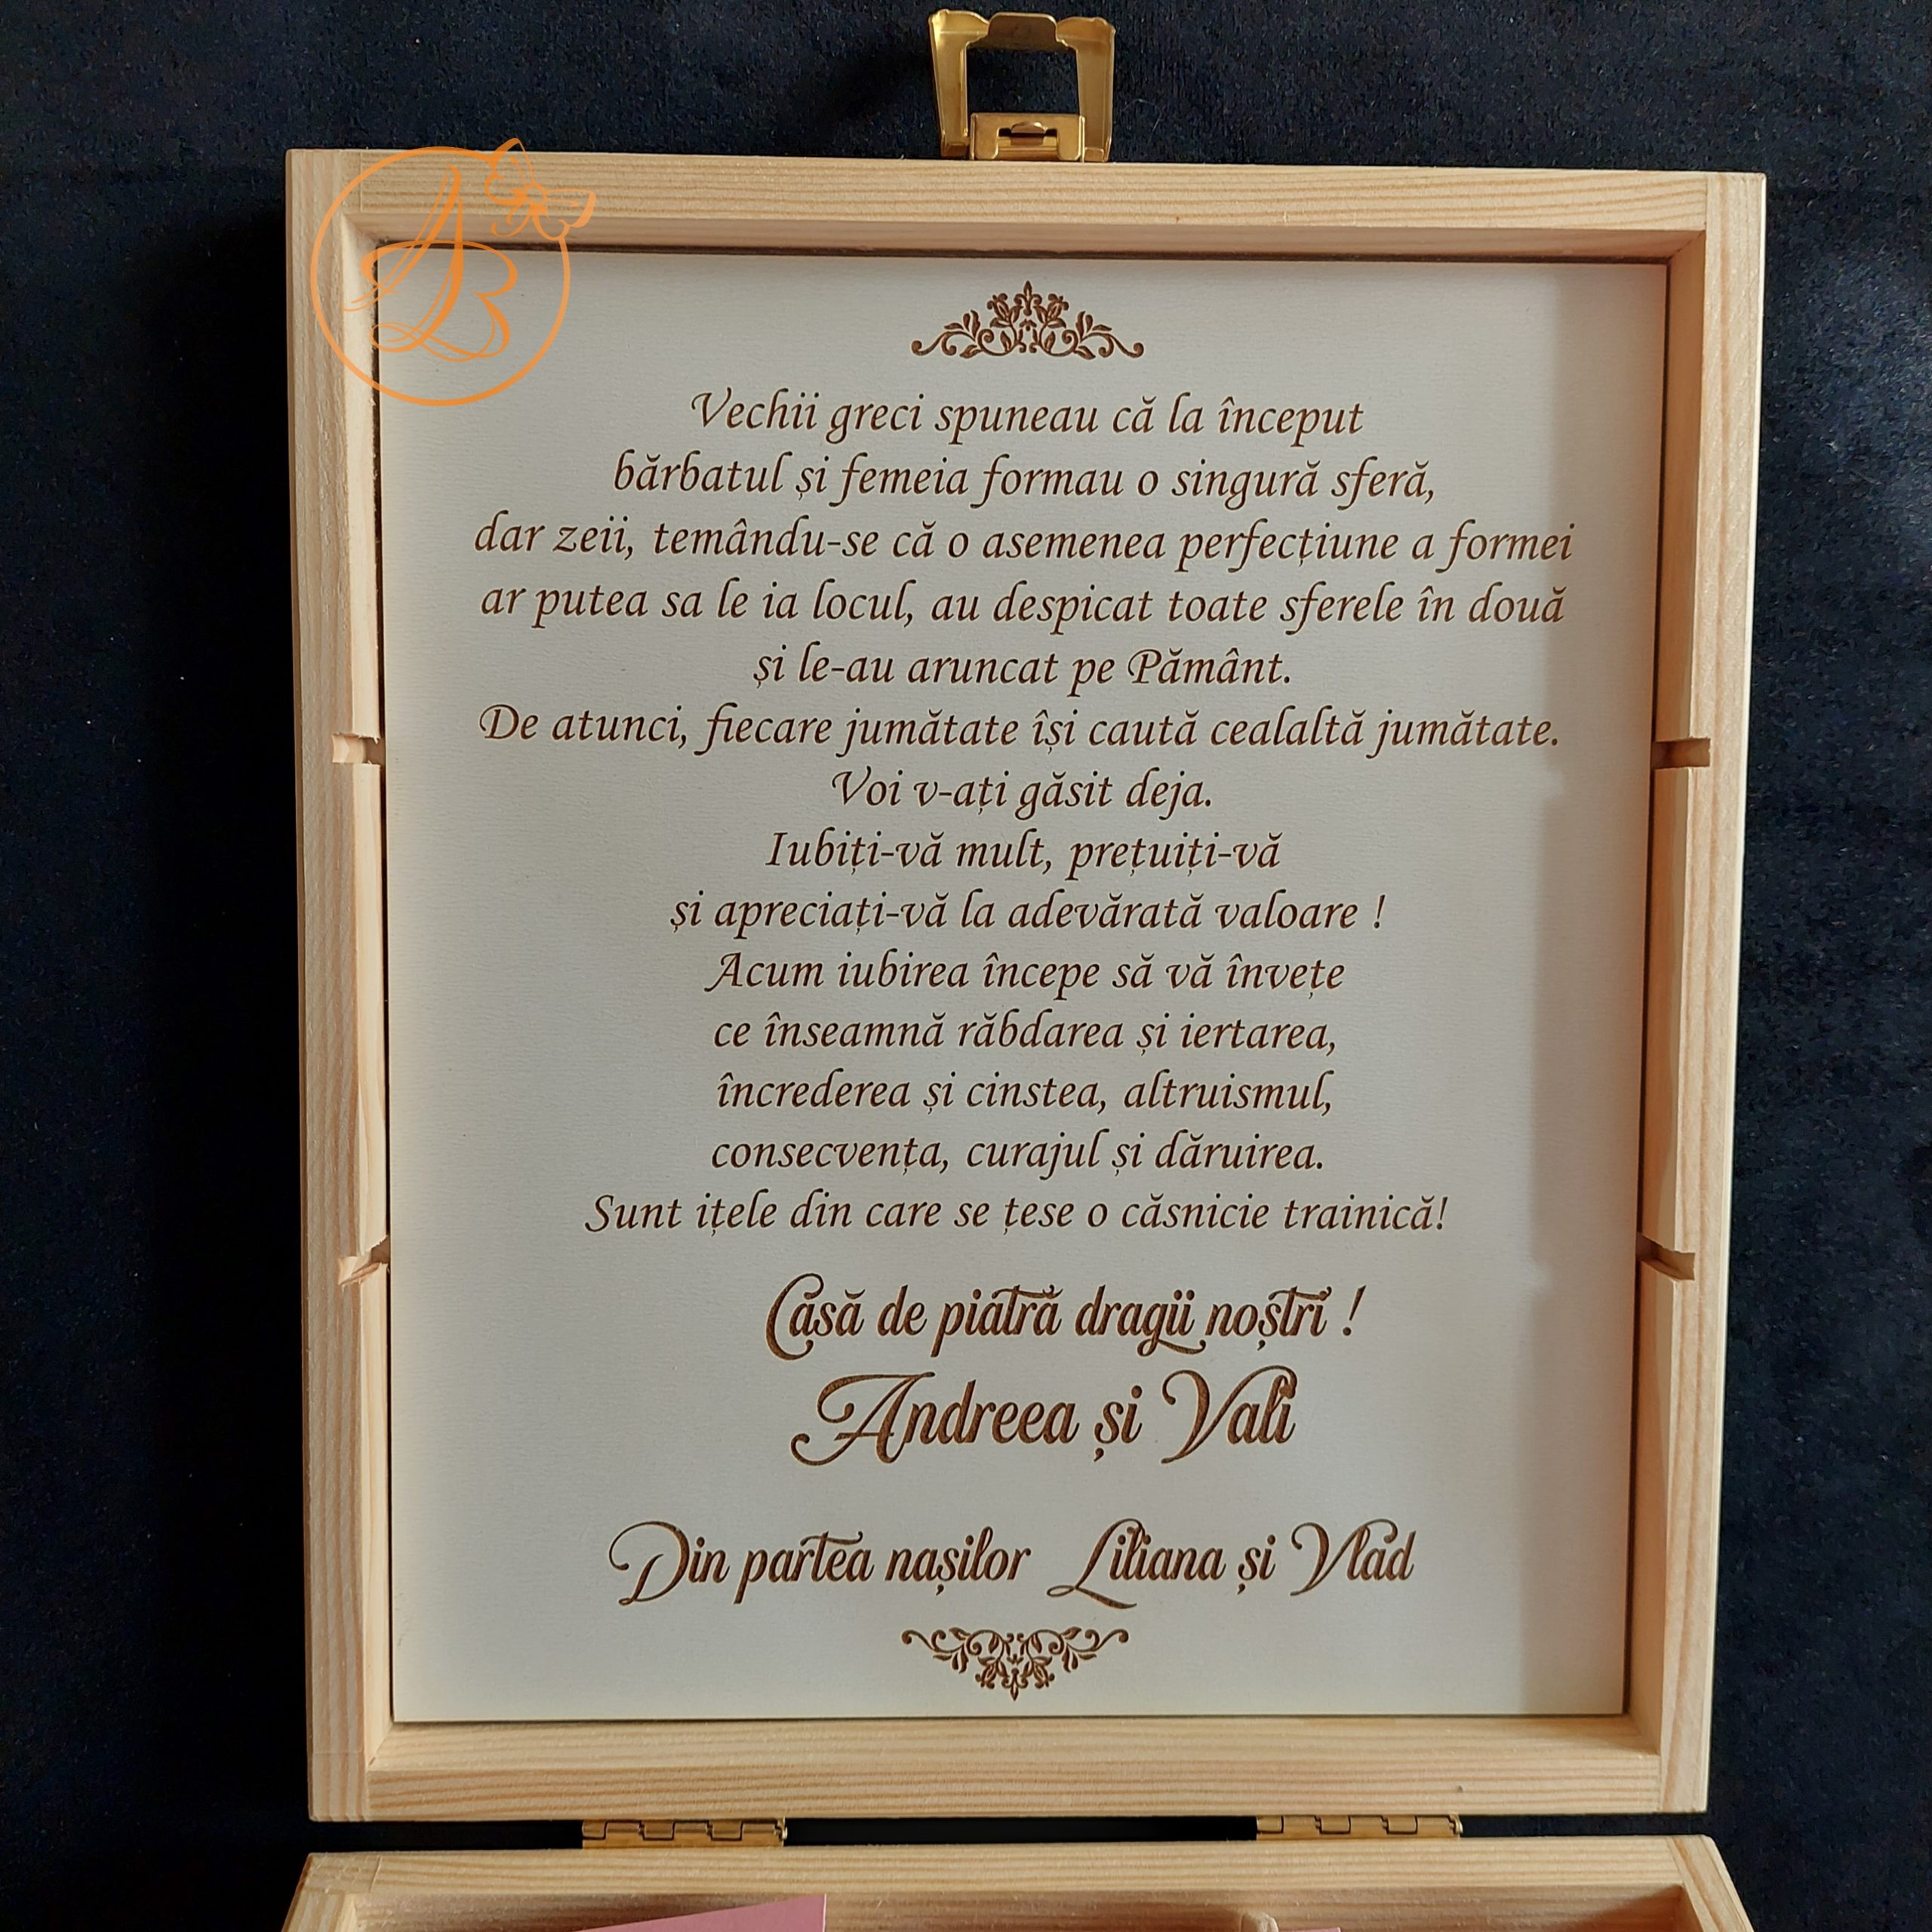 AB
Vechii greci spuneau că la început
bărbatul și femeia formau o singură sferă,
dar zeii, temându-se că o asemenea perfecțiune a formei
ar putea sa le ia locul, au despicat toate sferele în două
și le-au aruncat pe Pământ.
De atunci, fiecare jumătate își caută cealaltă jumătate.
Voi v-ați găsit deja.
Iubiți-vă mult, prețuiți-vă
și apreciați-vă la adevărată valoare !
Acum iubirea începe să vă învețe
ce înseamnă răbdarea și iertarea,
încrederea și cinstea, altruismul,
consecvența, curajul și dăruirea.
Sunt ițele din care se țese o căsnicie trainică!
Casă de piatră dragii noștri !
Andreea și Vali
Din partea nașilor Liliana și Vlad